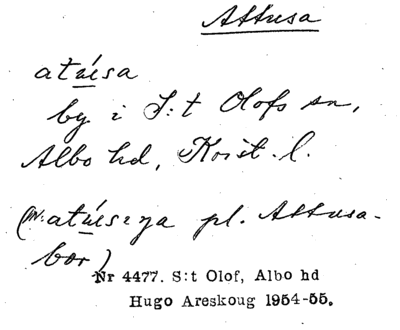 Attusa
atúsa
by i S:t Olofs sn,
Albo hd, Krist. l.
pl. Attusa-
bor)
Nr 4477. S:t Olof, Albo hd
Hugo Areskoug 1954-55.